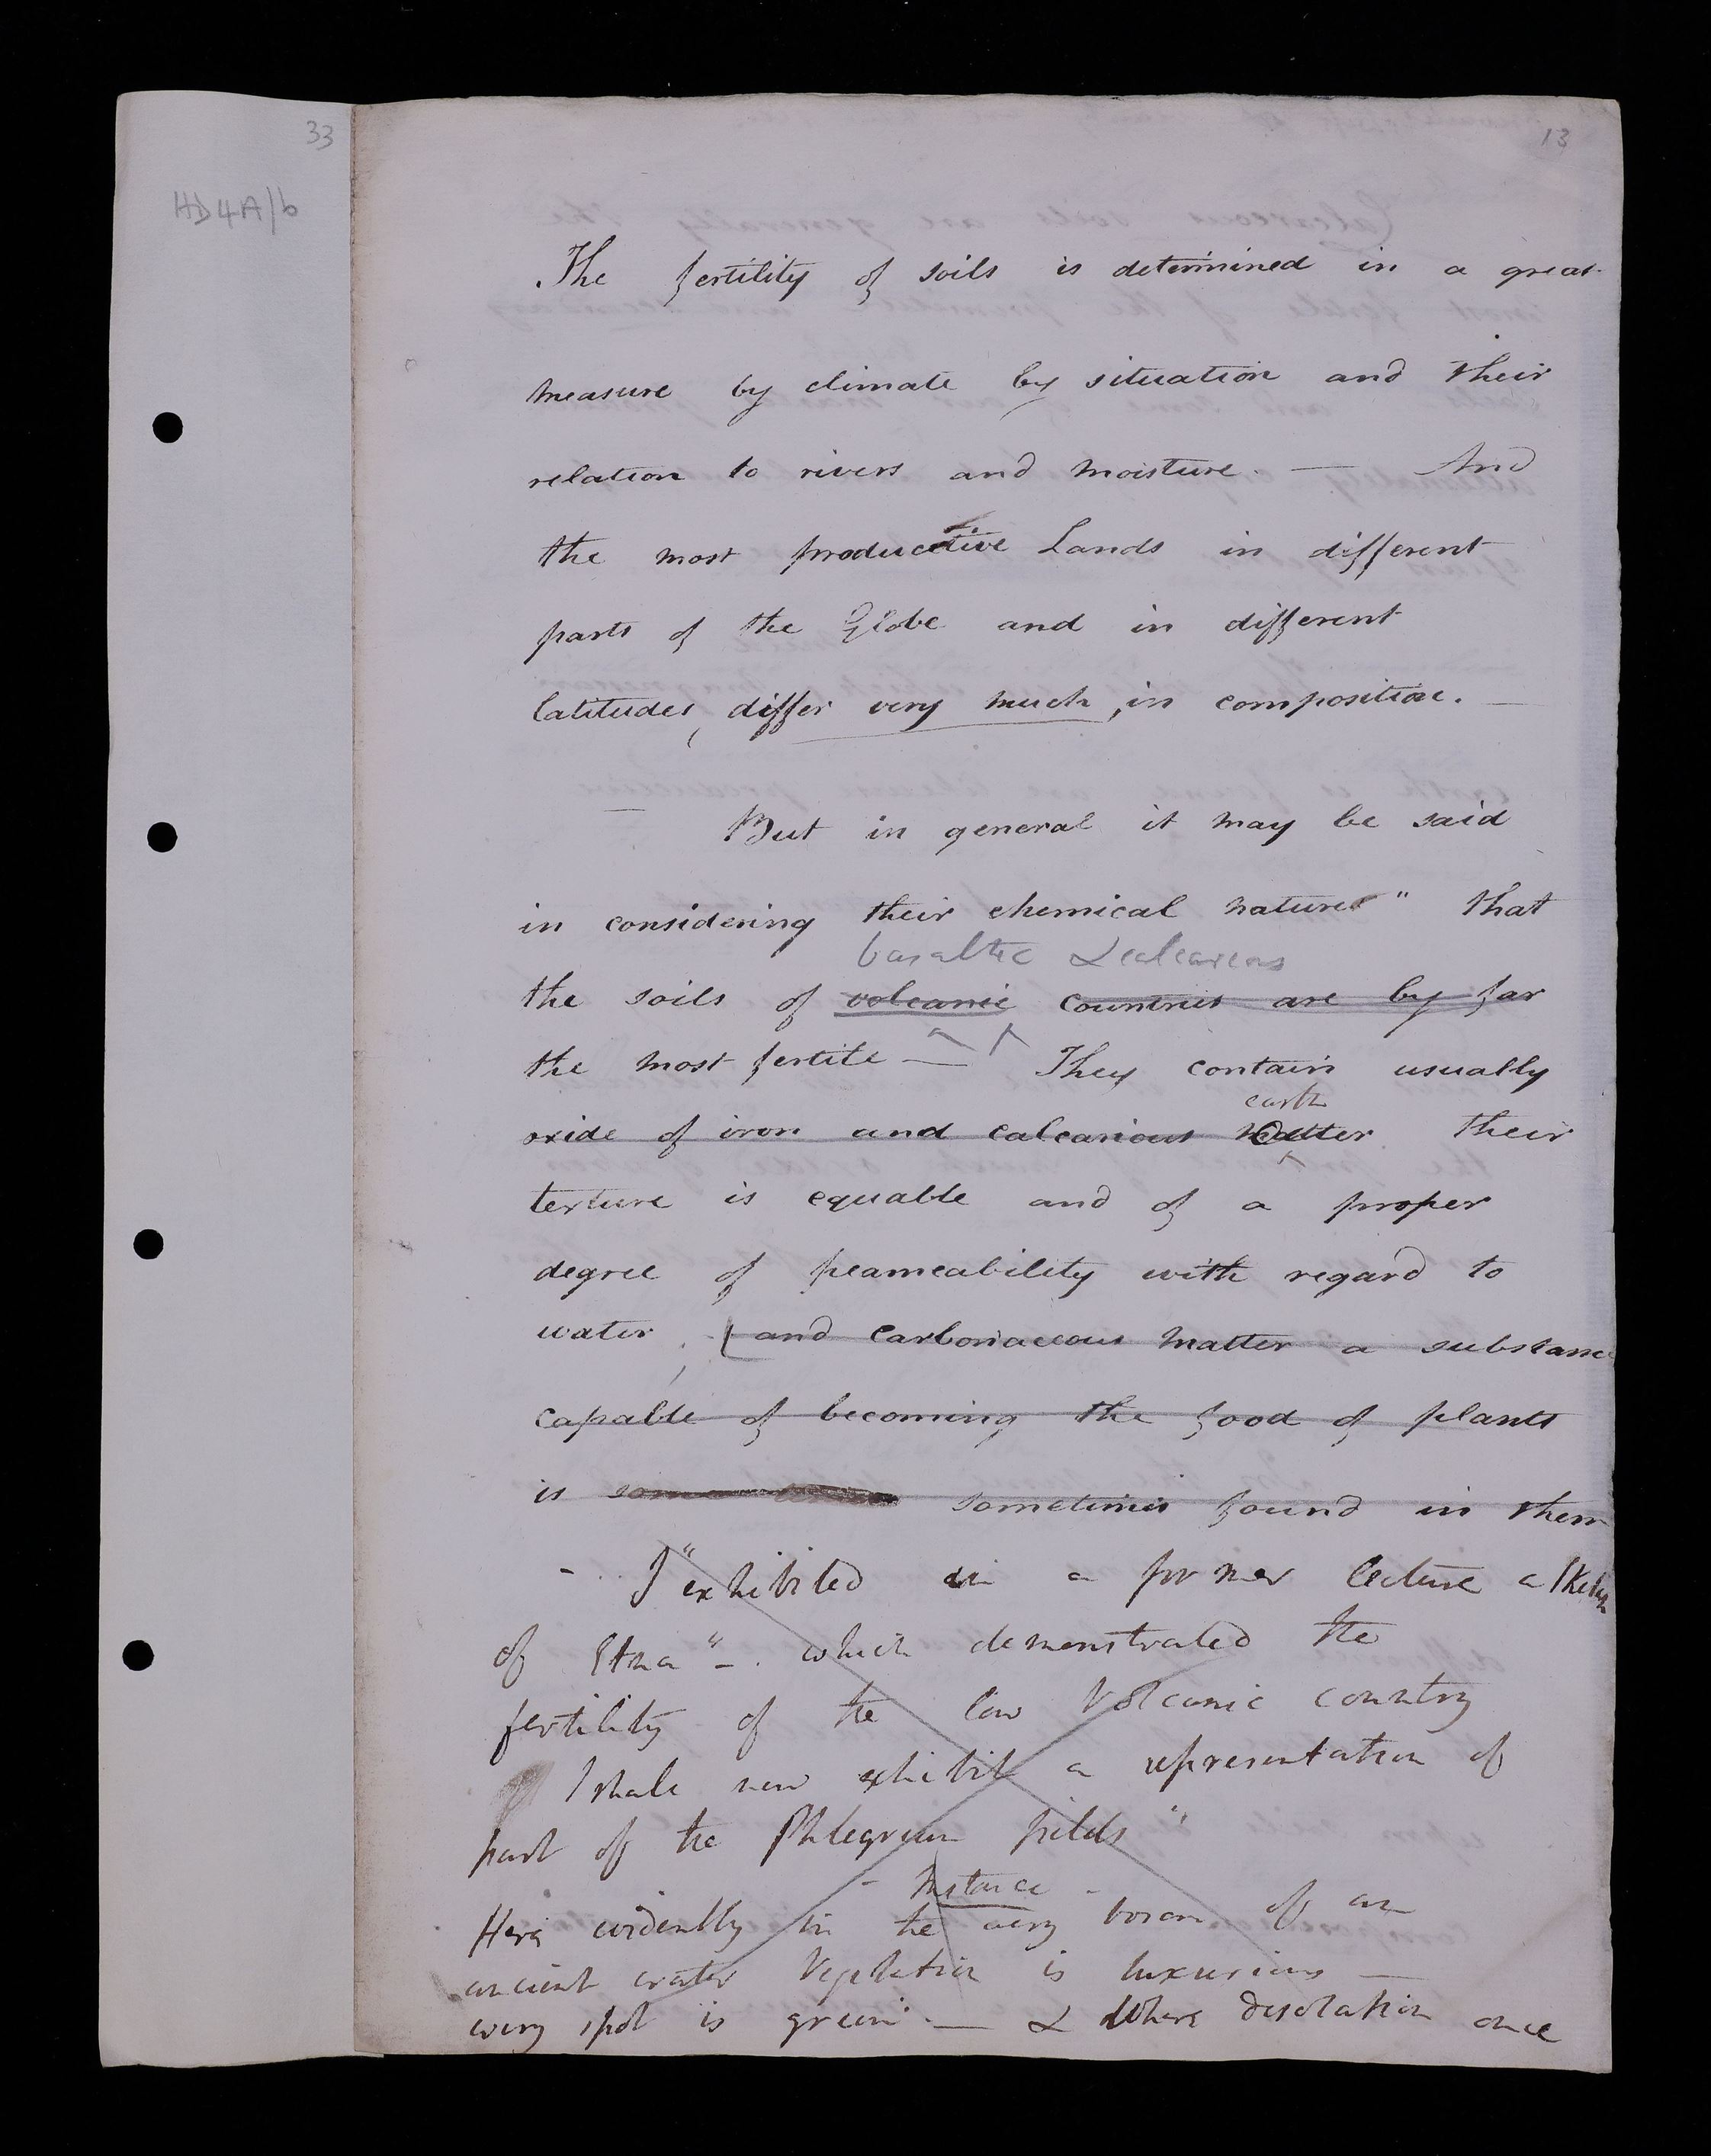 33
13
HD4A/b
The fertility of soils is determined in a great
measure by climate by situation and their
relation to rivers and moisture. — And
the most productive Lands in different
parts of the Globe and in different
latitudes, differ very much, in composition. —
— But in general it may be said
in considering their chemical nature " that
basaltic & calcareous
the soils of volcanic countries are by far
the most fertile — They contain usually
earth
oxide of iron and calcarious matter their
texture is equable and of a proper
degree of peameability with regard to
water, ( and carbonaceous matter a substance
capable of becoming the food of plants
is sometimes found in them
- I "exhibited in a former lecture a sketch
of Etna" -. which demonstrated the
fertility of the low Volcanic country
I shall now exhibit a representation of
part of the Phlegrean fields "
- Instance -
Here evidently in the very bosom of an
ancient crater Vegetation is luxurious —
every spot is green. — & Where desolation once